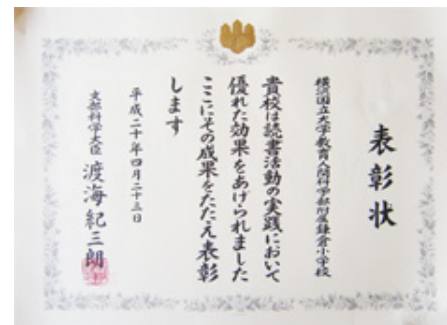 表彰状
横浜国立大学教育人間科学部附属鎌倉小学校
貴校は読書活動の実践において
優れた効果をあげられました
ここにその成果をたたえ表彰
します
平成二十年四月二十三日
文部科学大臣 渡海紀三朗